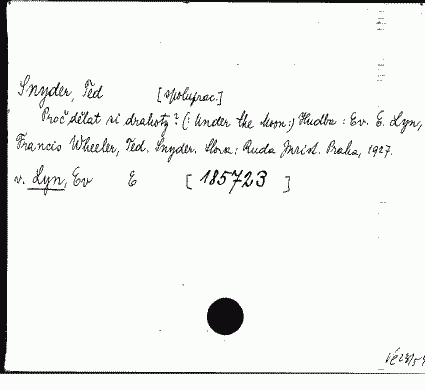 Snyder, Ted [spoluprac.]
Proč dělat si drahoty? (: Under the Moon:) Hudba: Ev. E. Lyn,
Francis Wheeler, Ted. Snyder. Slova: Ruda Jurist. Praha, 1927.
v. Lyn, Ev E [185723]